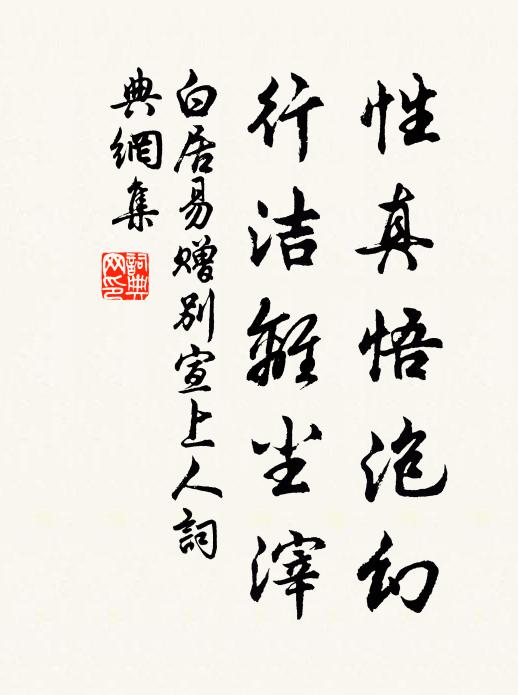 性真悟泡幻
行洁離尘滓
白居易赠别宣上人詞
典網集
詞典
网印